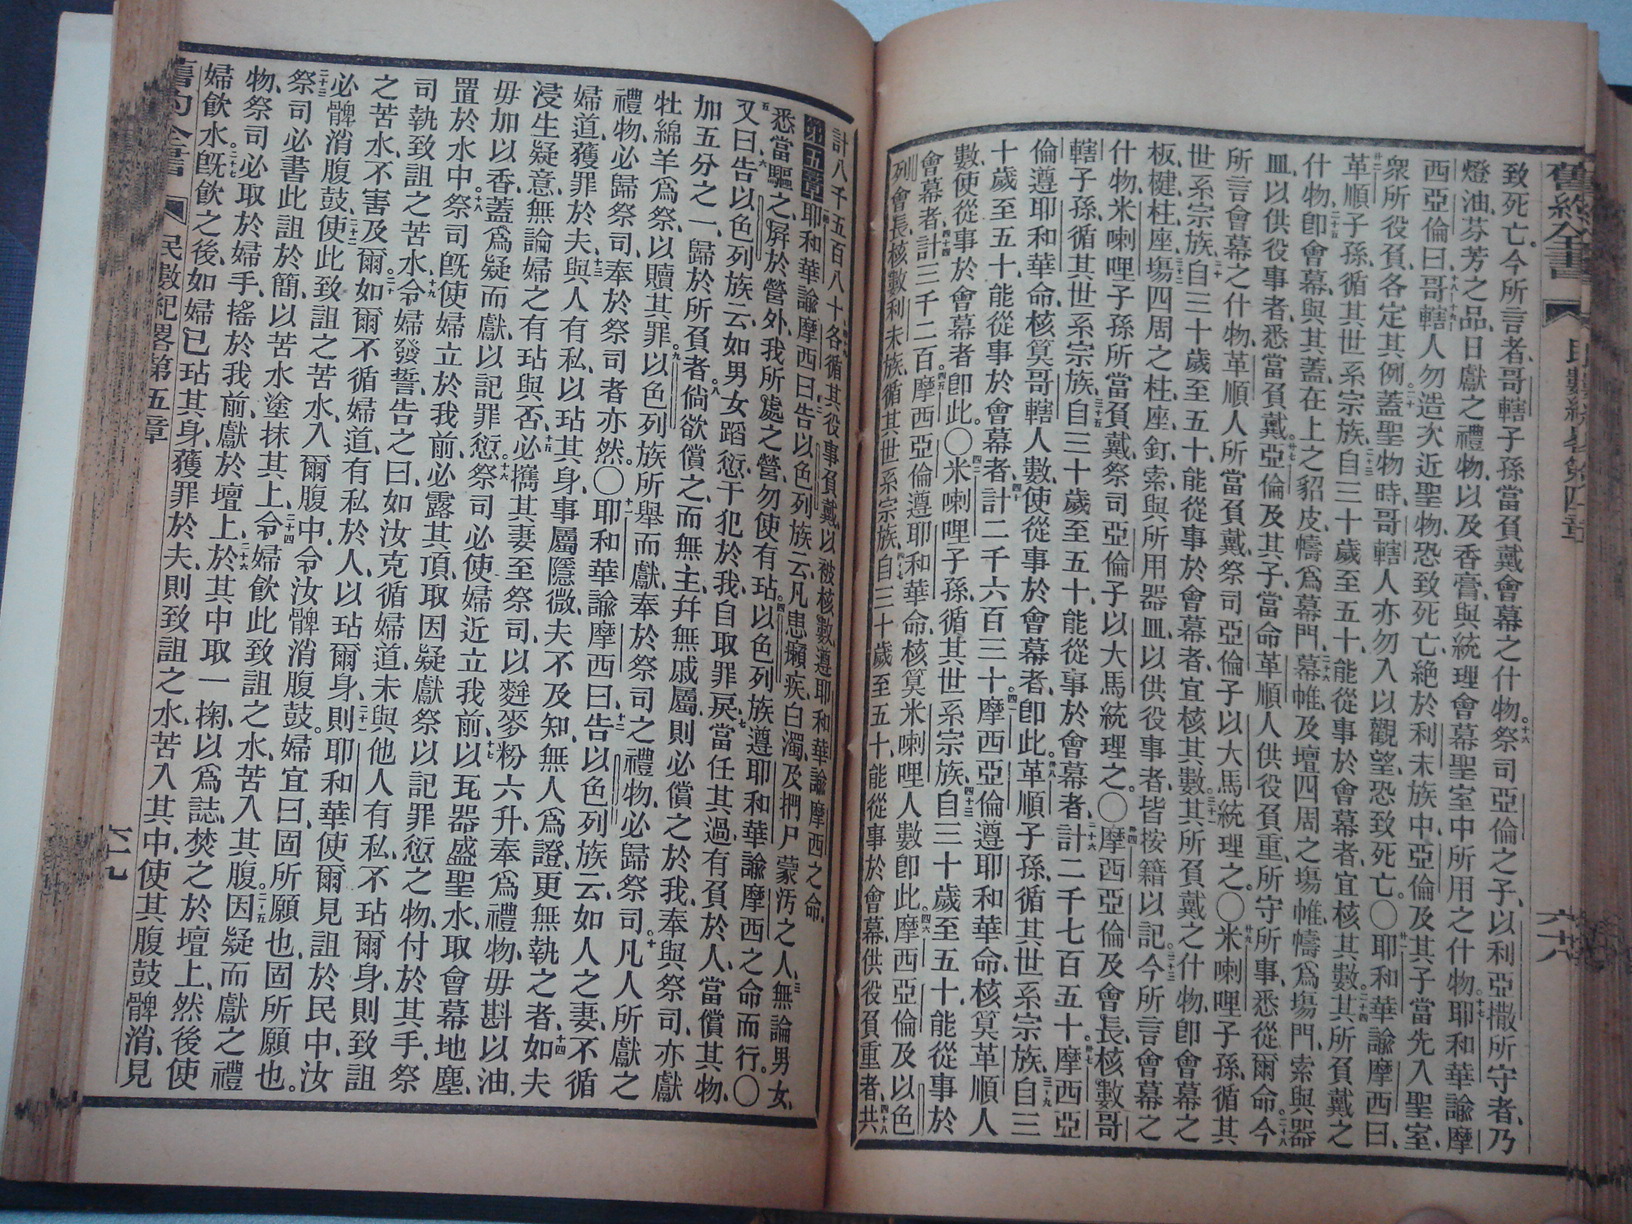 舊約全書 民數紀畧第四章 六十八
致死亡今所言者哥轄子孫當負戴會幕之什物十六祭司亞倫之子以利亞撒所守者乃
燈油芬芳之品日獻之禮物以及香膏與統理會幕聖室中所用之什物十七耶和華諭摩
西亞倫曰十八哥轄人勿造次近聖物恐致死亡絕於利未族中亞倫及其子當先入聖室
衆所役負各定其例二十蓋聖物時哥轄人亦勿入以觀望恐致死亡〇廿一耶和華諭摩西曰
革順子孫循其世系宗族二十三自三十歲至五十能從事於會幕者宜核其數二十四其所負戴之
什物卽會幕與其蓋在上之貂皮幬爲幕門二十六幕帷及壇四周之塲帷幬爲塲門索與器
皿以供役事者悉當負戴二十七亞倫及其子當命革順人供役負重所守所事悉從爾命二十八今
所言會幕之什物革順人所當負戴祭司亞倫子以大馬統理之〇廿九米喇哩子孫循其
世系宗族三十自三十歲至五十能從事於會幕者宜核其數三十一其所負戴之什物卽會幕之
板楗柱座三十二塲四周之柱座釘索與所用器皿以供役事者皆按籍以記三十三今所言會幕之
什物米喇哩子孫所當負戴祭司亞倫子以大馬統理之〇卅四摩西亞倫及會長核數哥
轄子孫循其世系宗族三十五自三十歲至五十能從事於會幕者三十六計二千七百五十卅七摩西亞
倫遵耶和華命核算哥轄人數使從事於會幕者卽此卅八革順子孫循其世系宗族三十九自三
十歲至五十能從事於會幕者四十計二千六百三十四一摩西亞倫遵耶和華命核算革順人
數使從事於會幕者卽此〇四二米喇哩子孫循其世系宗族四十三自三十歲至五十能從事於
會幕者四十四計三千二百四五摩西亞倫遵耶和華命核算米喇哩人數卽此四六摩西亞倫及以色
列會長核數利未族循其世系宗族四七自三十歲至五十能從事於會幕供役負重者四十八共
計八千五百八十四十九各循其役事負戴以被核數遵耶和華諭摩西之命
第五章 耶和華諭摩西曰二告以色列族云凡患癩疾白濁及捫尸蒙汚之人三無論男女
悉當驅之屛於營外我所處之營勿使有玷四以色列族遵耶和華諭摩西之命而行〇
五又曰六告以色列族云如男女蹈愆干犯於我自取罪戾七當任其過有負於人當償其物
加五分之一歸於所負者八倘欲償之而無主幷無戚屬則必償之於我奉與祭司亦獻
牡綿羊爲祭以贖其罪九以色列族所舉而獻奉於祭司之禮物必歸祭司十凡人所獻之
禮物必歸祭司奉於祭司者亦然〇十一耶和華諭摩西曰十二告以色列族云如人之妻不循
婦道獲罪於夫十三與人有私以玷其身事屬隱微夫不及知無人爲證更無執之者十四如夫
浸生疑意無論婦之有玷與否十五必攜其妻至祭司以麰麥粉六升奉爲禮物毋斟以油
毋加以香蓋爲疑而獻以記罪愆十六祭司必使婦近立我前十七以瓦器盛聖水取會幕地塵
置於水中十八祭司旣使婦立於我前必露其頂取因疑獻祭以記罪愆之物付於其手祭
司執致詛之苦水十九令婦發誓告之曰如汝克循婦道未與他人有私不玷爾身則致詛
之苦水不害及爾二十如爾不循婦道有私於人以玷爾身二十一則耶和華使爾見詛於民中汝
必髀消腹鼓二十二使此致詛之苦水入爾腹中令汝髀消腹鼓婦宜曰固所願也固所願也
二十三祭司必書此詛於簡以苦水塗抹其上二十四令婦飲此致詛之水苦入其腹二十五因疑而獻之禮
物祭司必取於婦手搖於我前獻於壇上二十六於其中取一掬以爲誌焚之於壇上然後使
婦飲水二十七旣飲之後如婦已玷其身獲罪於夫則致詛之水苦入其中使其腹鼓髀消見
舊約全書 民數紀畧第五章 六十九